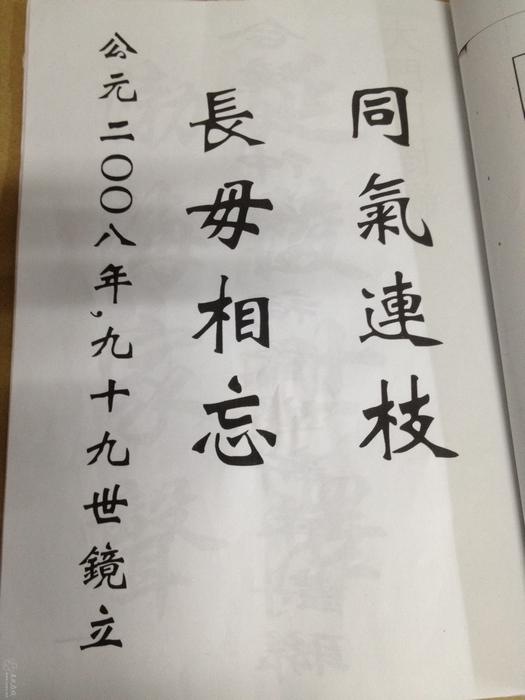 同氣連枝
長毋相忘
公元二〇〇八年，九十九世鏡立